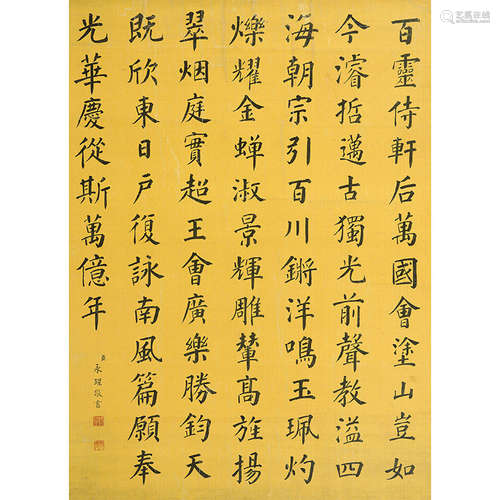 百靈侍軒后萬國會塗山豈如
今濬哲邁古獨光前聲教溢四
海朝宗引百川鏘洋鳴玉珮灼
爍耀金蟬淑景輝雕輦高旌揚
翠烟庭實超王會廣樂勝鈞天
既欣東日戶復詠南風篇願奉
光華慶從斯萬億年
臣永瑆敬書